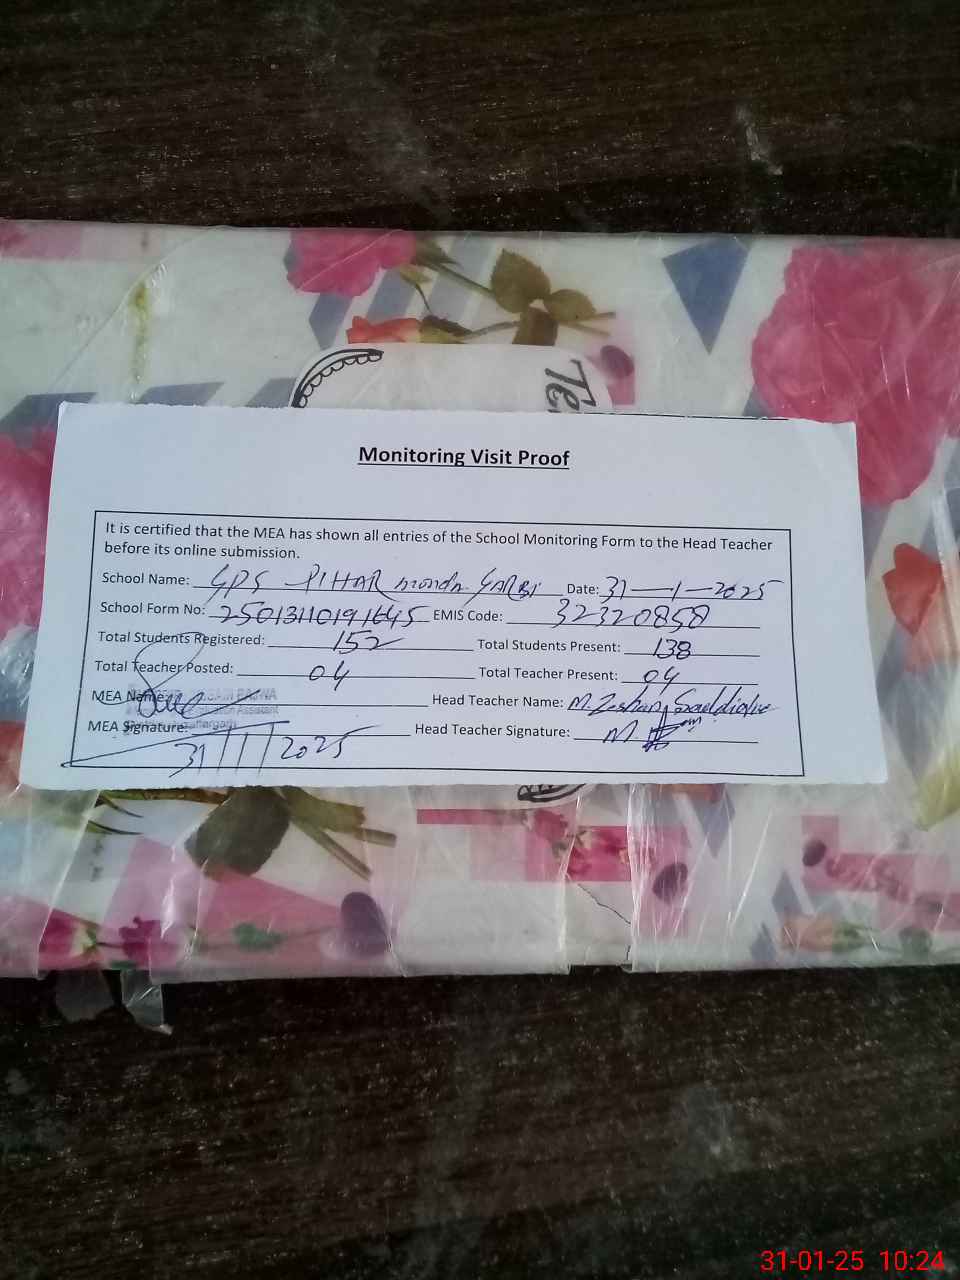 Te
Monitoring Visit Proof
It is certified that the MEA has shown all entries of the School Monitoring Form to the Head Teacher
before its online submission.
School Name: GPS PIHAR monda GARBI Date: 31-1-2025
School Form No: 2501311019 1645 EMIS Code: 32320858
Total Students Registered: 152 Total Students Present: 138
Total Teacher Posted: 04 Total Teacher Present: 04
MEA Name: BAJWA Head Teacher Name: M. Zeshan
Assistant
MEA Signature: Head Teacher Signature: M.
31/1/2025
31-01-25 10:24